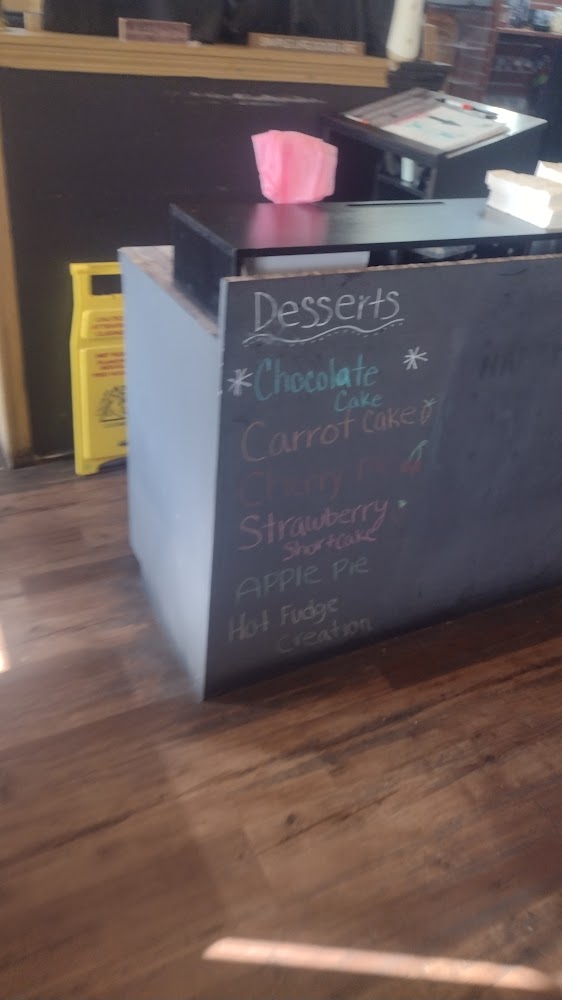 Desserts
Chocolate
Cake
Carrot Cake
Cherry Pie
Strawberry
Shortcake
APPLE PIE
Hot Fudge
Creation